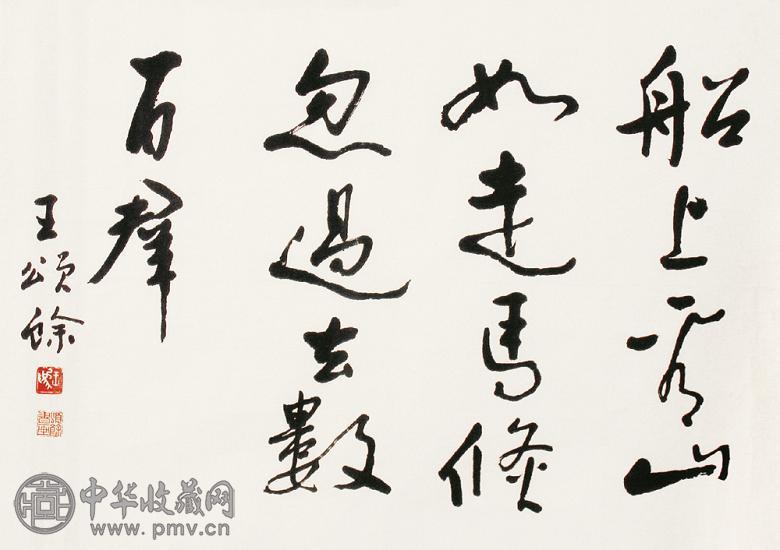 船上看山
如走馬倏
忽過去數
百羣
王頌餘
中华收藏网
www.pmv.cn